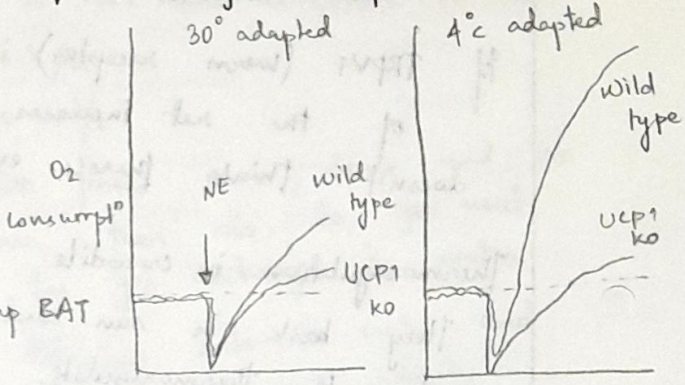 30° adapted
4°c adapted
O₂
consumptⁿ
NE
wild
type
UCP1
ko
Wild
type
UCP1
ko
up BAT